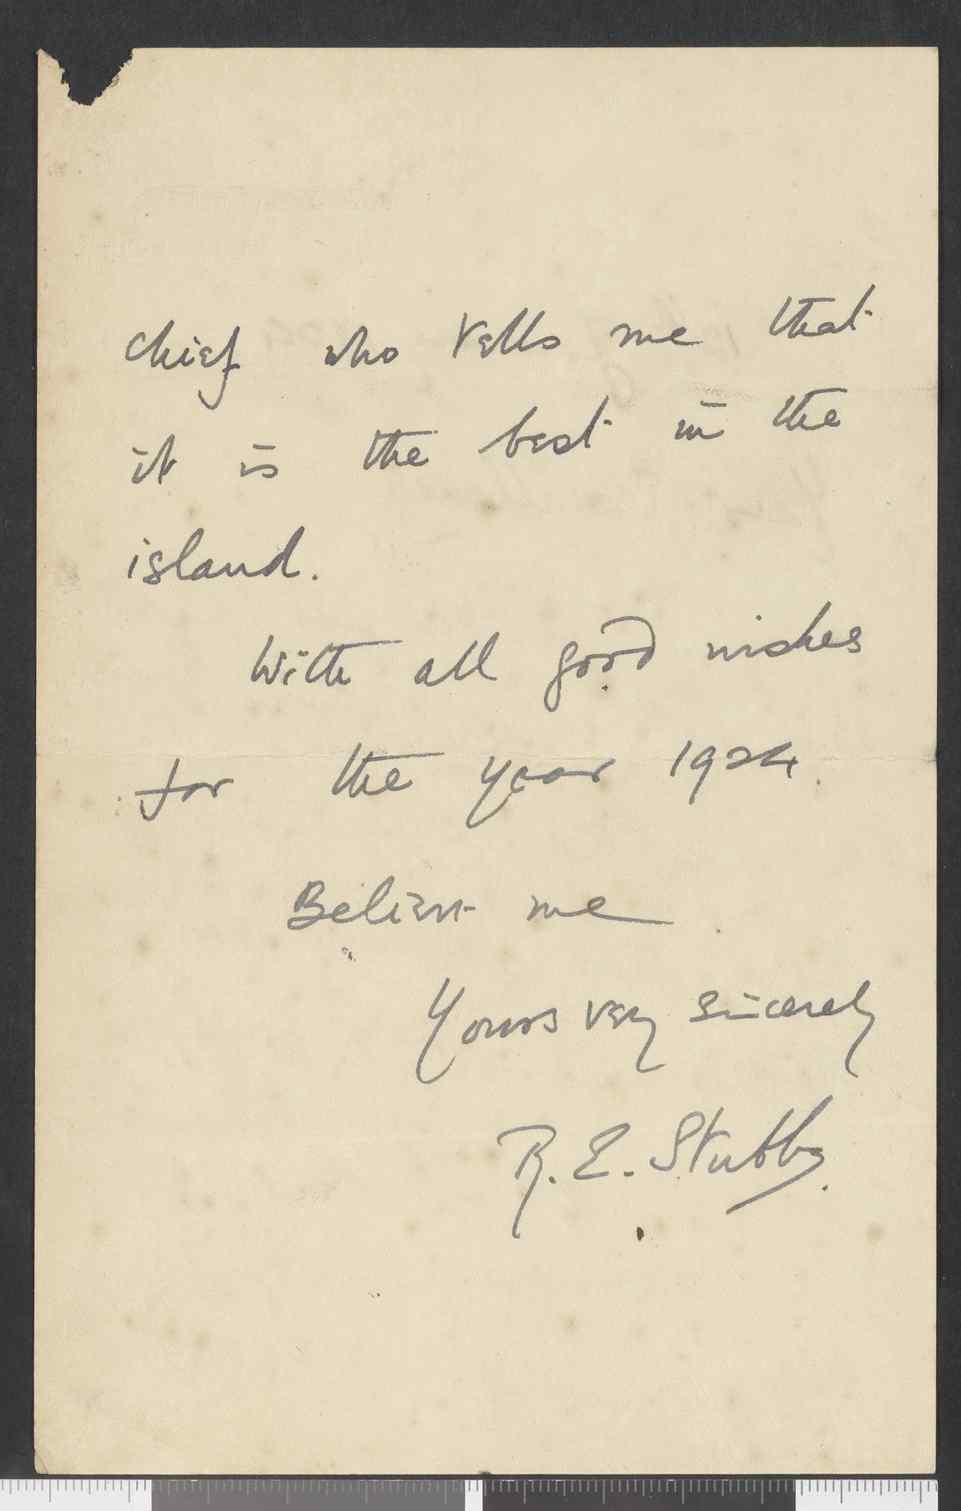 chief who tells me that
it is the best in the
island.
With all good wishes
for the year 1924.
Believe me
Yours very sincerely
R. E. Stubbs.